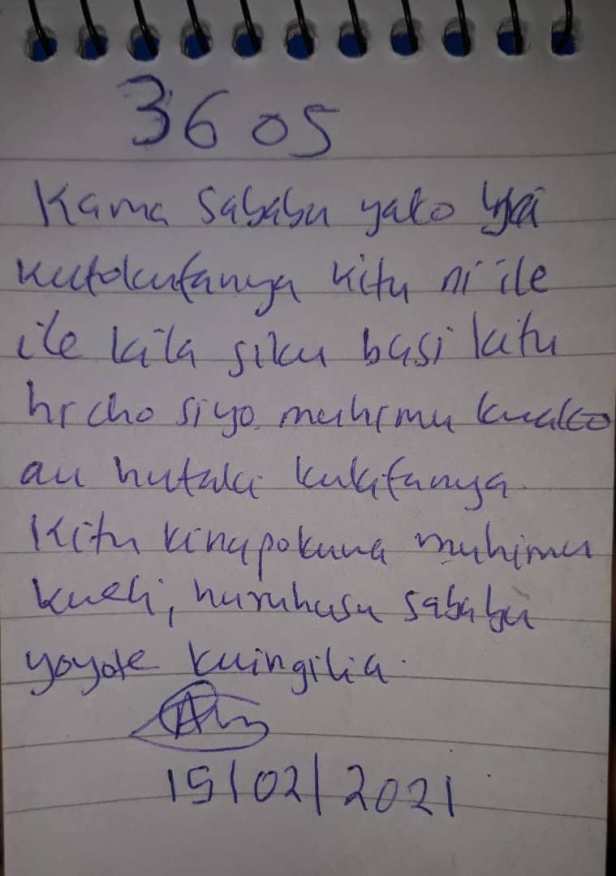 3605
Kama sababu yako ya
kutokufanya kitu ni ile
ile kila siku basi kitu
hicho siyo muhimu kwako
au hutaki kukifanya.
Kitu kinapokuwa muhimu
kweli, huruhusu sababu
yoyote kuingilia.
15/02/2021